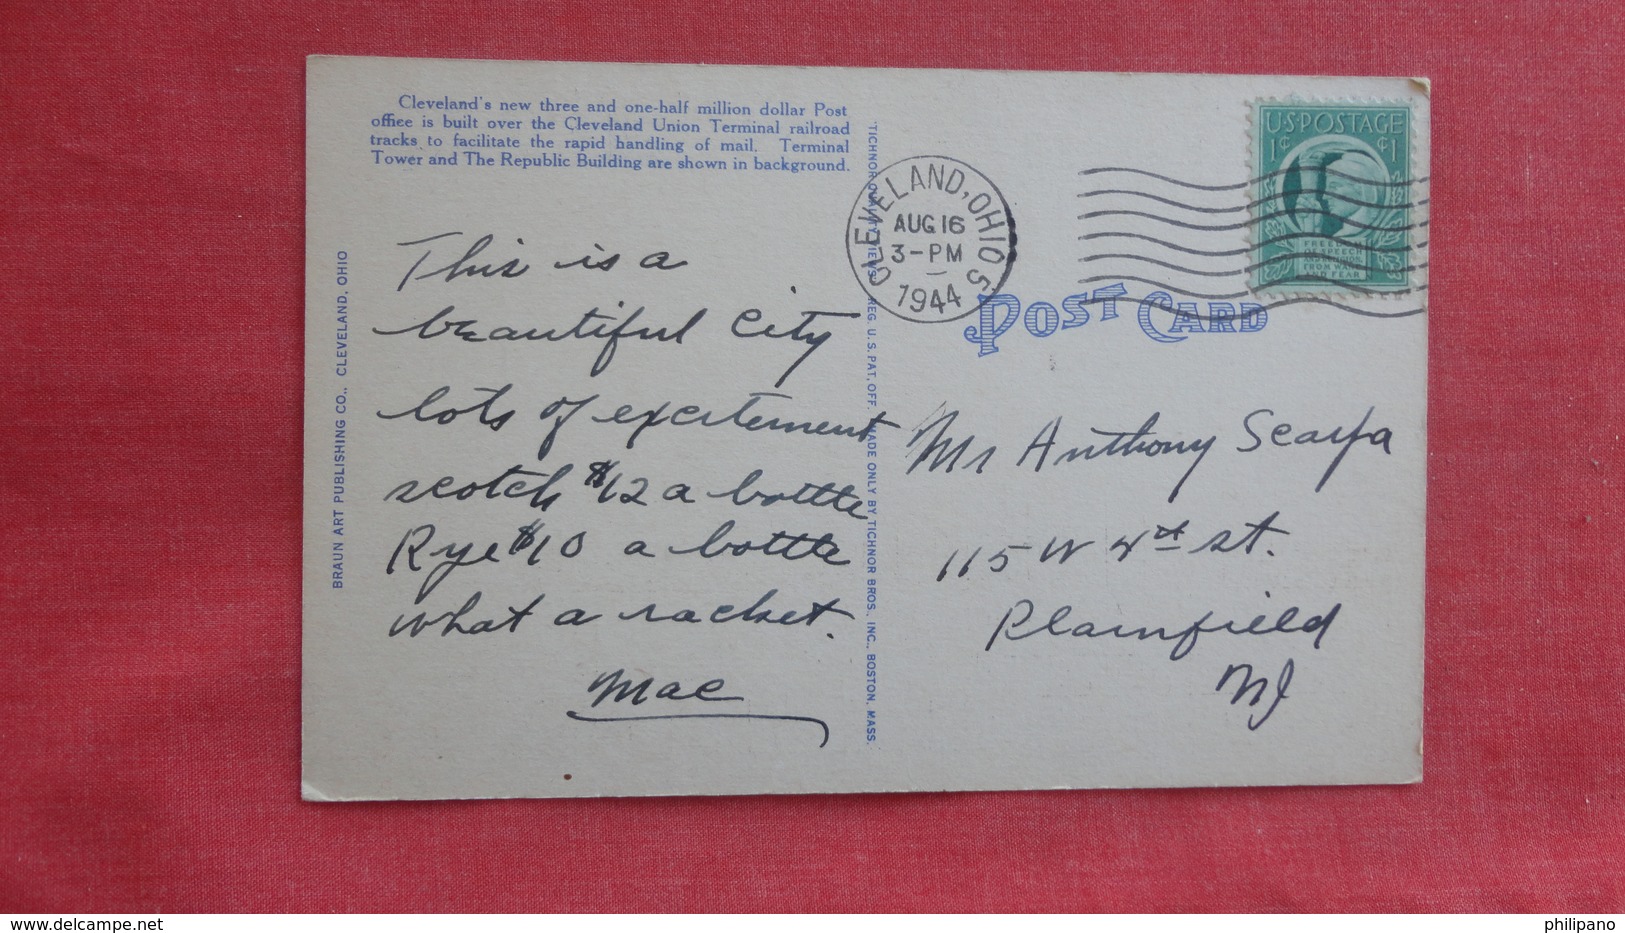 Cleveland's new three and one-half million dollar Post
office is built over the Cleveland Union Terminal railroad
tracks to facilitate the rapid handling of mail. Terminal
Tower and The Republic Building are shown in background.
BRAUN ART PUBLISHING CO., CLEVELAND, OHIO
This is a
beautiful City
lots of excitement
scotch $12 a bottle
Rye $10 a bottle
what a racket.
Mac
"TICHNOR QUALITY VIEWS" REG. U.S. PAT. OFF. MADE ONLY BY TICHNOR BROS., INC., BOSTON, MASS.
CLEVELAND, OHIO 5
AUG 16
3-PM
1944
U.S. POSTAGE
1¢ ¢1
FREEDOM
OF SPEECH
AND RELIGION
FROM WANT
AND FEAR
POST CARD
Mr Anthony Scarfa
115 W 4th st.
Plainfield
NJ
delcampe.net
philipano